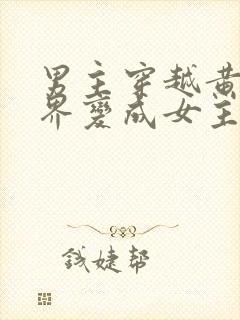 男主穿越黄
界變成女主
钱婕帮